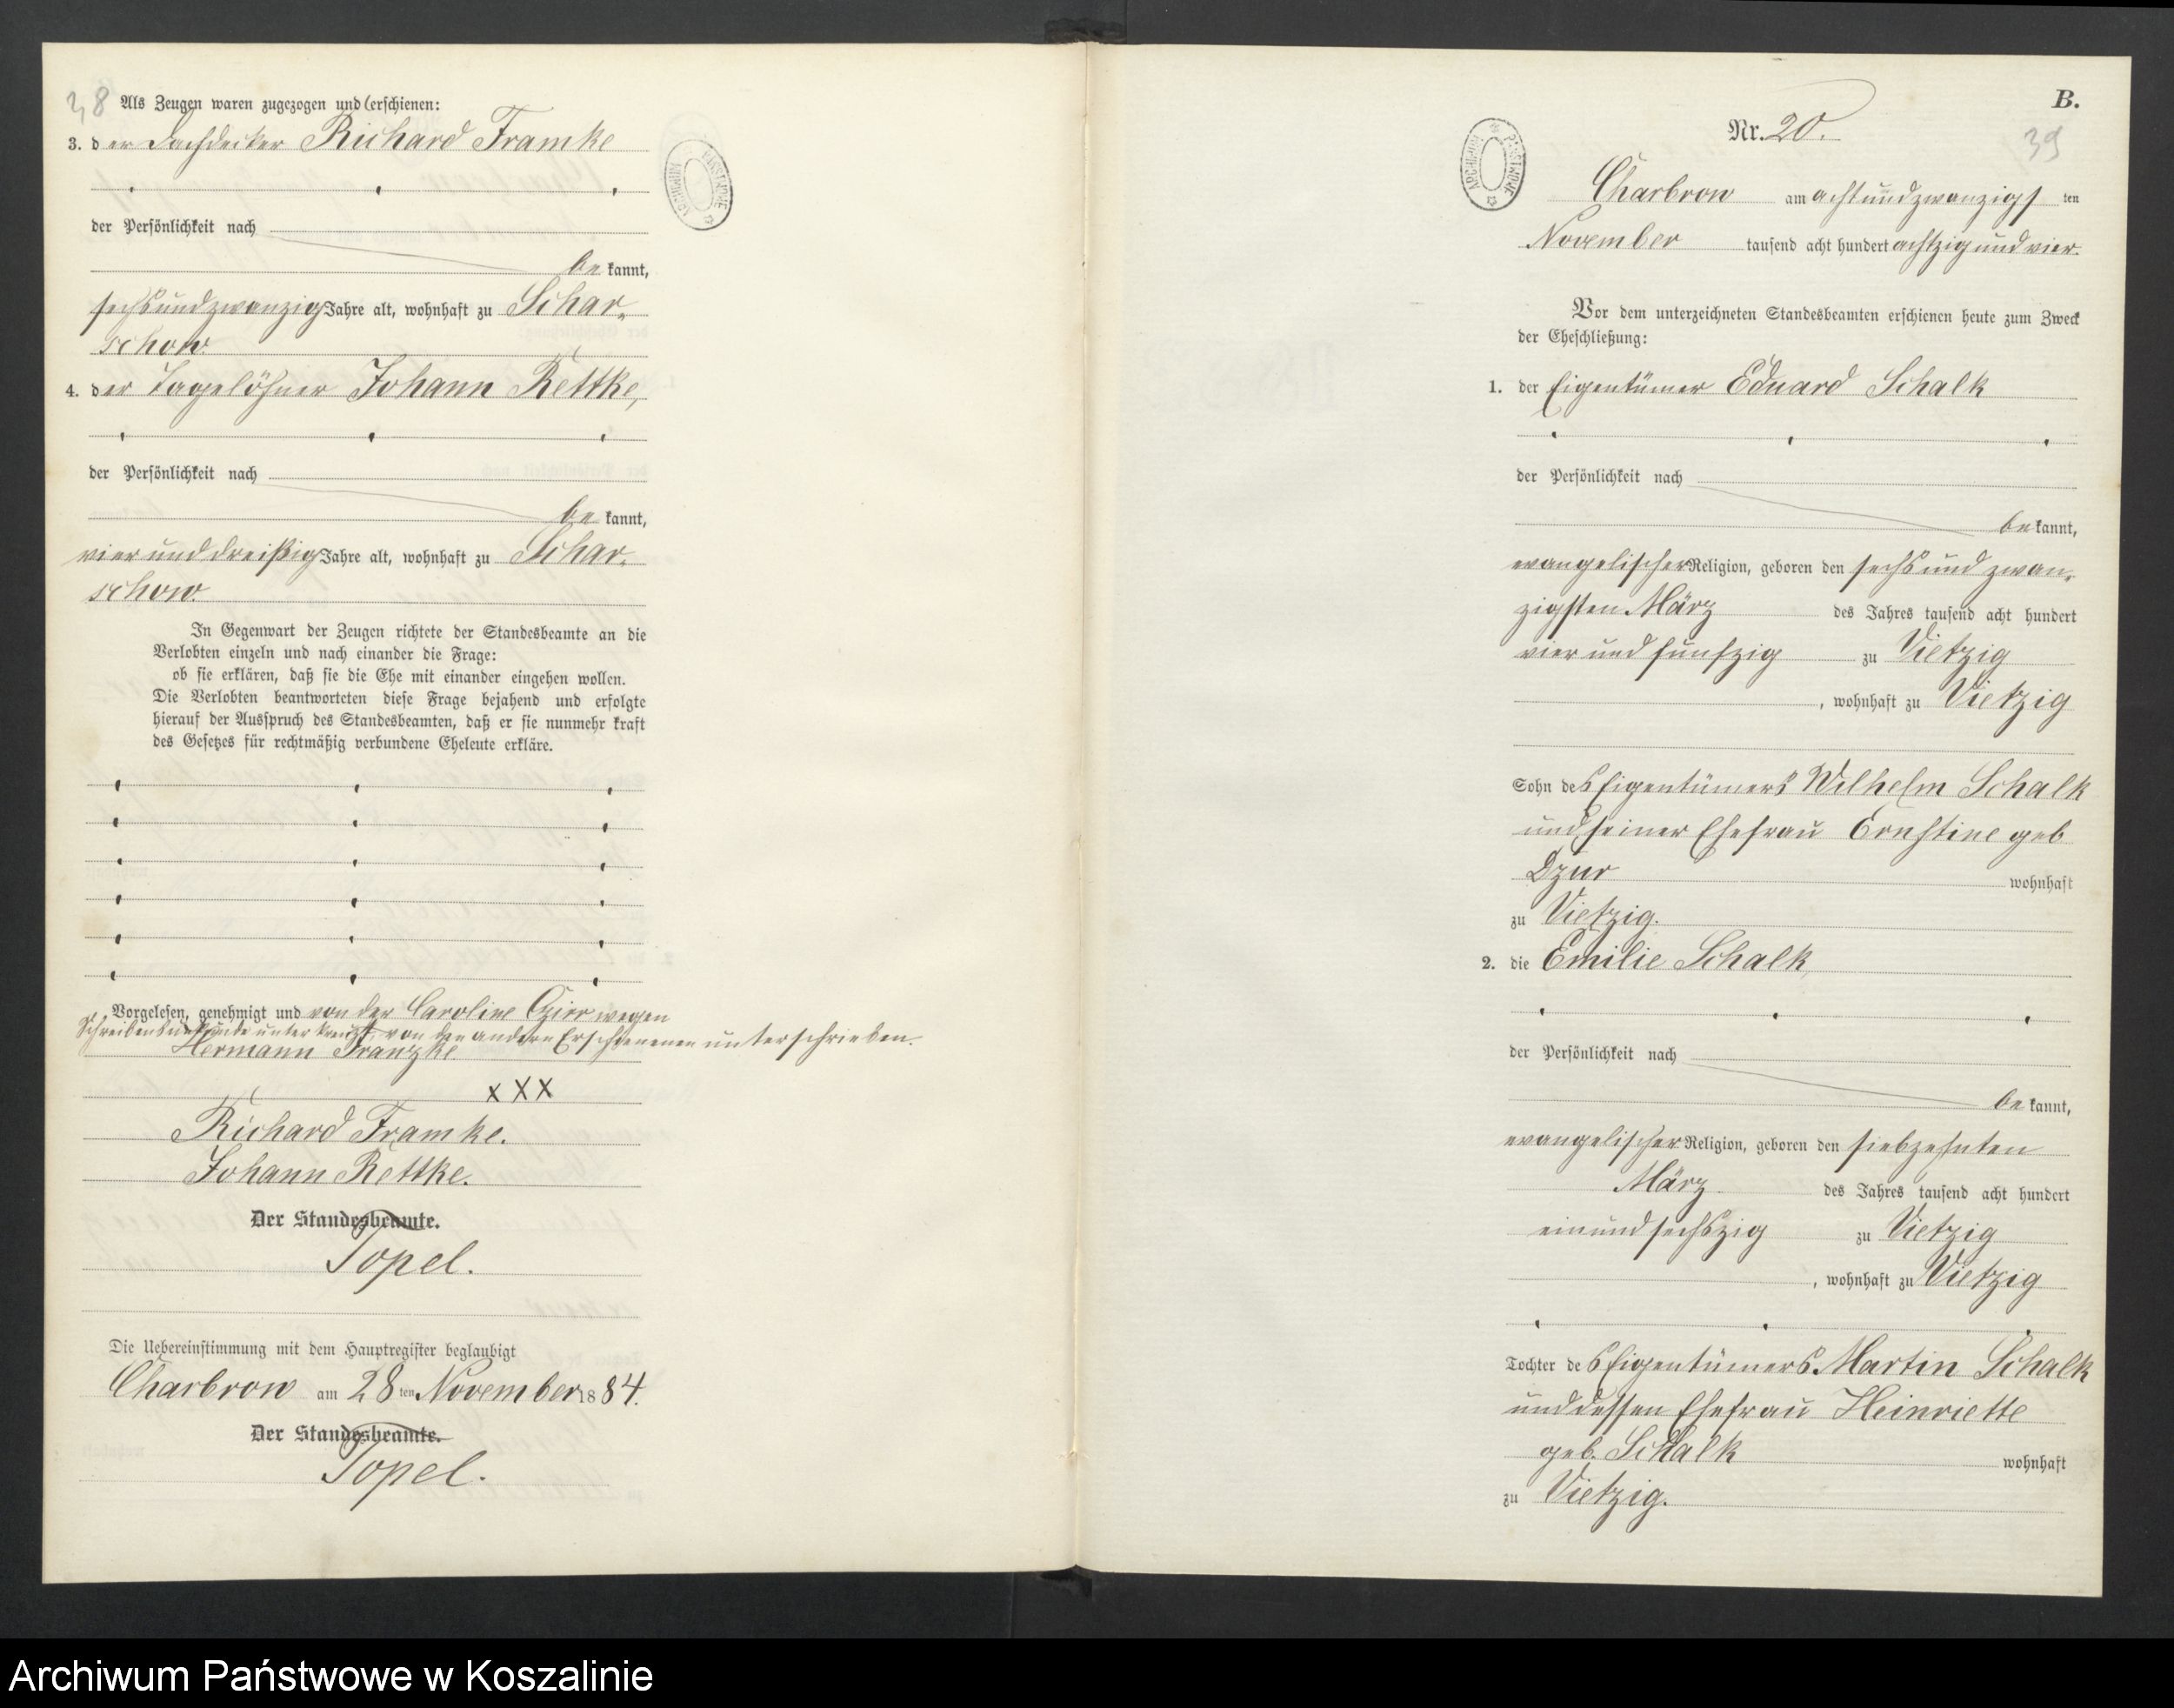 38
Als Zeugen waren zugezogen und erschienen:
3. der Dachdecker Richard Framke
der Persönlichkeit nach
bekannt,
sechsundzwanzig Jahre alt, wohnhaft zu Schar-
schow.
4. der Tagelöhner Johann Rettke,
der Persönlichkeit nach
bekannt,
vier und dreißig Jahre alt, wohnhaft zu Schar-
schow
In Gegenwart der Zeugen richtete der Standesbeamte an die
Verlobten einzeln und nach einander die Frage:
ob sie erklären, daß sie die Ehe mit einander eingehen wollen.
Die Verlobten beantworteten diese Frage bejahend und erfolgte
hierauf der Ausspruch des Standesbeamten, daß er sie nunmehr kraft
des Gesetzes für rechtmäßig verbundene Eheleute erkläre.
Vorgelesen, genehmigt und von der Caroline Czirr wegen
Schreibensunkunde unterkreuzt, von den andern Erschienenen unterschrieben.
Hermann Franzke
xXX
Richard Framke.
Johann Rettke.
Der Standesbeamte.
Topel.
Die Uebereinstimmung mit dem Hauptregister beglaubigt
Charbrow am 28ten November 1884.
Der Standesbeamte.
Topel.
ARCHIWUM PAŃSTWOWE
B.
Nr. 20.
39
ARCHIWUM PAŃSTWOWE
Charbrow am achtundzwanzigsten
November tausend acht hundert achtzig und vier.
Vor dem unterzeichneten Standesbeamten erschienen heute zum Zweck
der Eheschließung:
1. der Eigentümer Eduard Schalk
der Persönlichkeit nach
bekannt,
evangelischer Religion, geboren den sechs und zwan-
zigsten März des Jahres tausend acht hundert
vier und funfzig zu Vietzig
, wohnhaft zu Vietzig
Sohn des Eigentümers Wilhelm Schalk
und seiner Ehefrau Ernstine geb
Dzur wohnhaft
zu Vietzig.
2. die Emilie Schalk,
der Persönlichkeit nach
bekannt,
evangelischer Religion, geboren den siebzehnten
März des Jahres tausend acht hundert
ein und sechszig zu Vietzig
, wohnhaft zu Vietzig
Tochter des Eigentümers Martin Schalk
und dessen Ehefrau Heinriette
geb. Schalk wohnhaft
zu Vietzig.
Archiwum Państwowe w Koszalinie